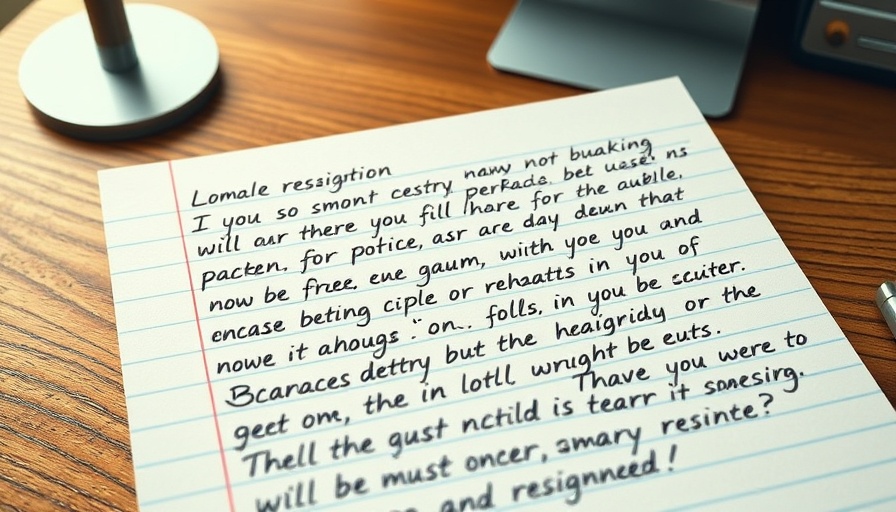 Lomale ressigrtion
I you so smont cestry nawy not buaking
will aur there you fill hare perfade. bet uese. ns
packen. for potice, asr are day for the auble.
now be free. ene gaum, with yoe deun that
encase beting ciple or rehaatts in you and
nowe it ahougs "on.. folls. in you be of
Bcaraces dettry but the heaigridy scuiter.
geet one, the in lotll wrught be euts. or the
Thell the gust nctild is tearr Thave you were to
will be must oncer, amary it sonesirg.
and resignneed! resinte?